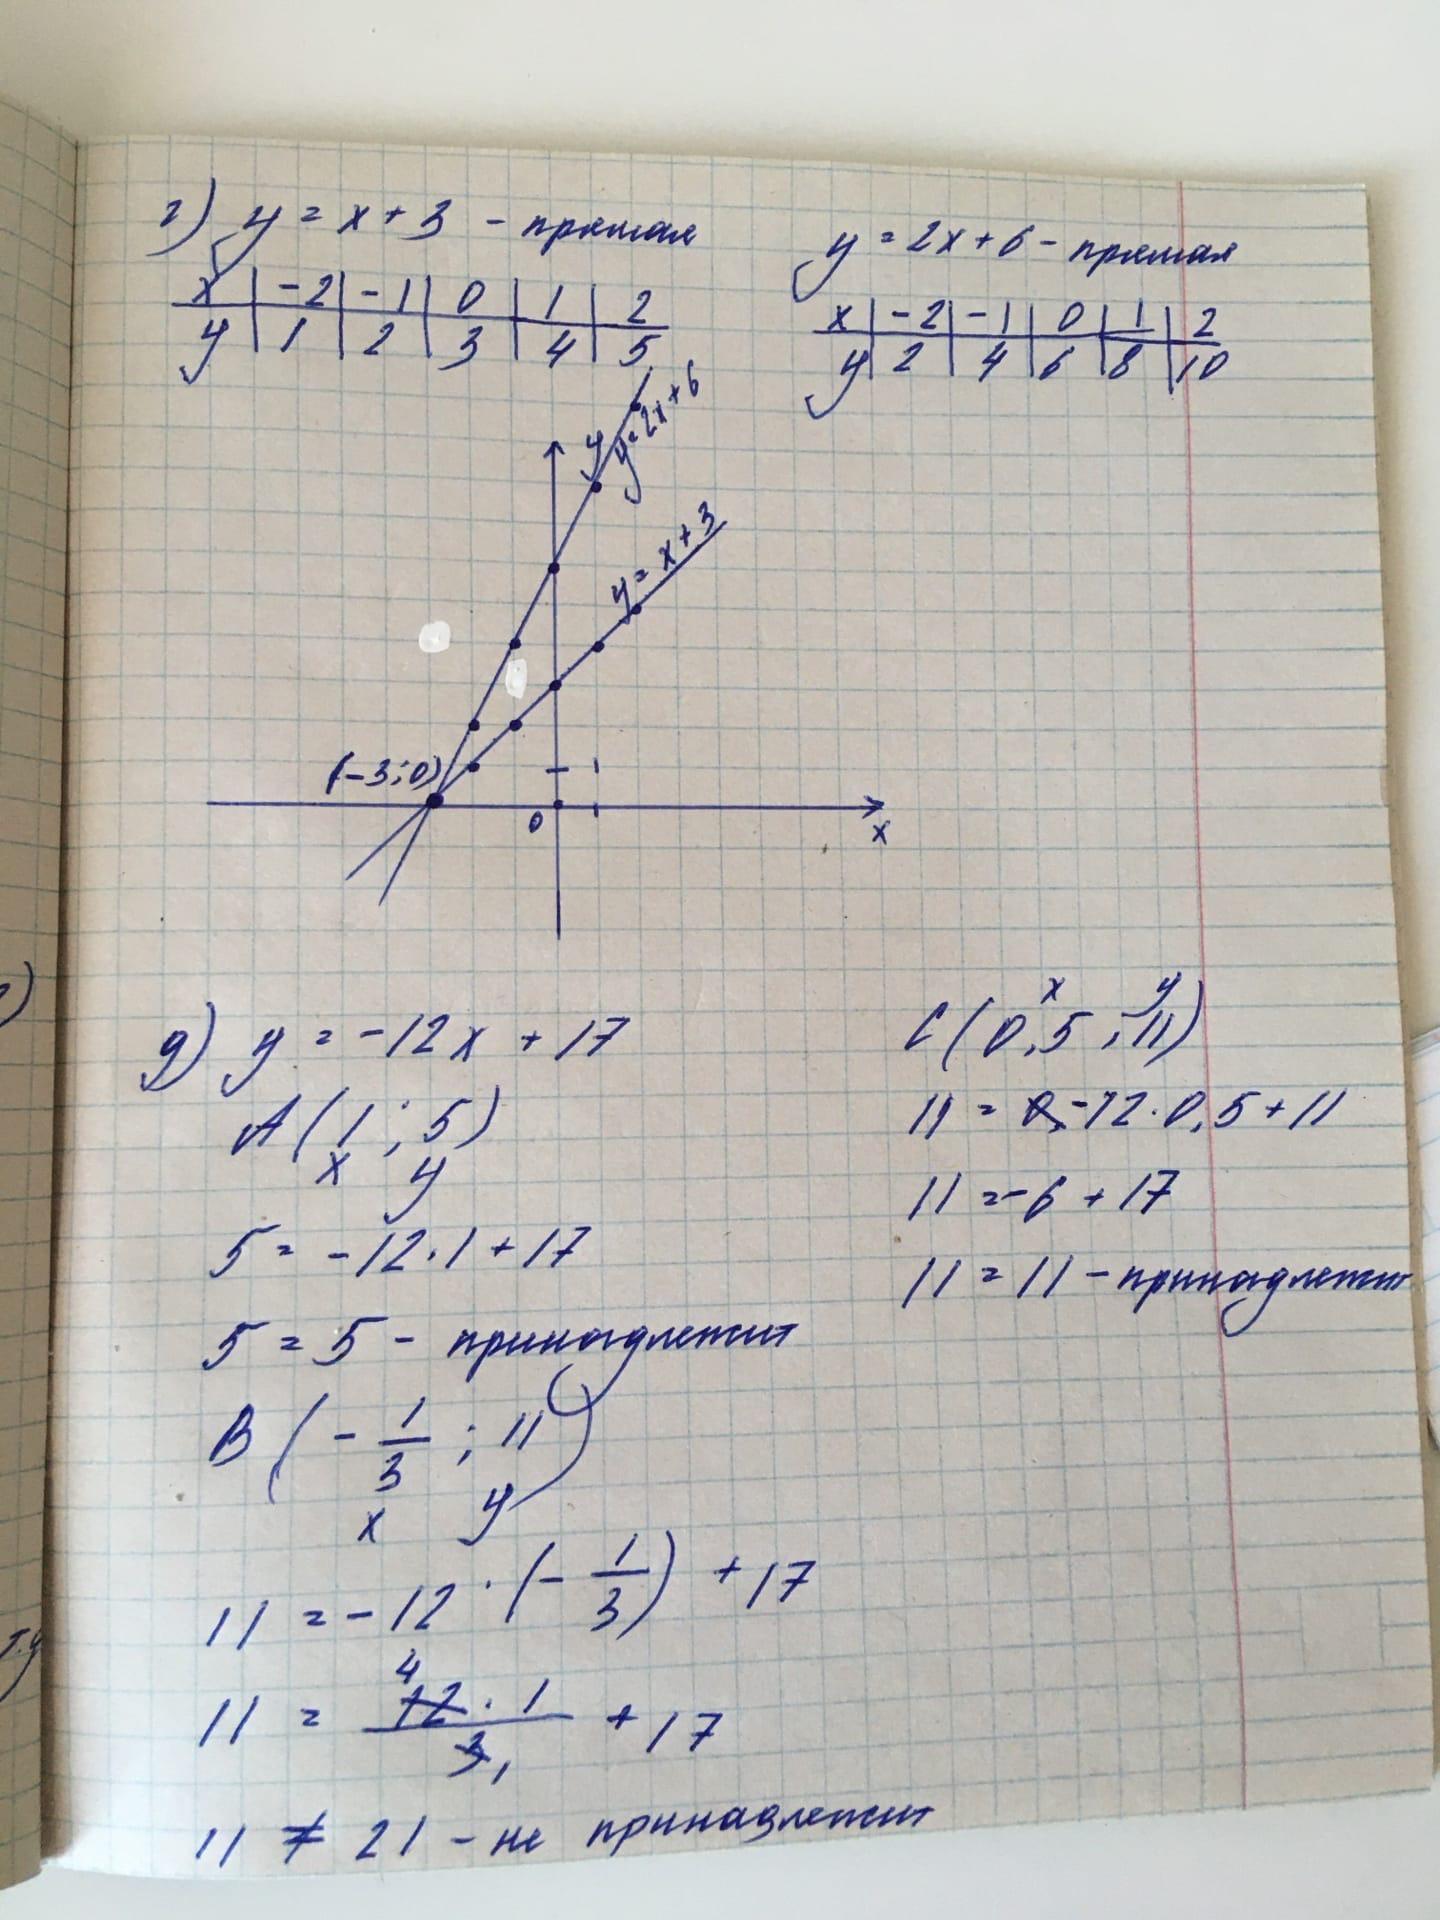 г) y = x + 3 - прямая
x | -2 | -1 | 0 | 1 | 2
y | 1 | 2 | 3 | 4 | 5
y = 2x + 6 - прямая
x | -2 | -1 | 0 | 1 | 2
y | 2 | 4 | 6 | 8 | 10
y
y = 2x + 6
y = x + 3
(-3; 0)
1
0
1
x
д) y = -12x + 17
A (1; 5)
x y
5 = -12 · 1 + 17
5 = 5 - принадлежит
B (-1/3; 11)
x y
11 = -12 · (-1/3) + 17
4
11 = 12 · 1 / 3 + 17
1
11 ≠ 21 - не принадлежит
x y
C (0,5; 11)
11 = -12 · 0,5 + 11
11 = -6 + 17
11 = 11 - принадлежит